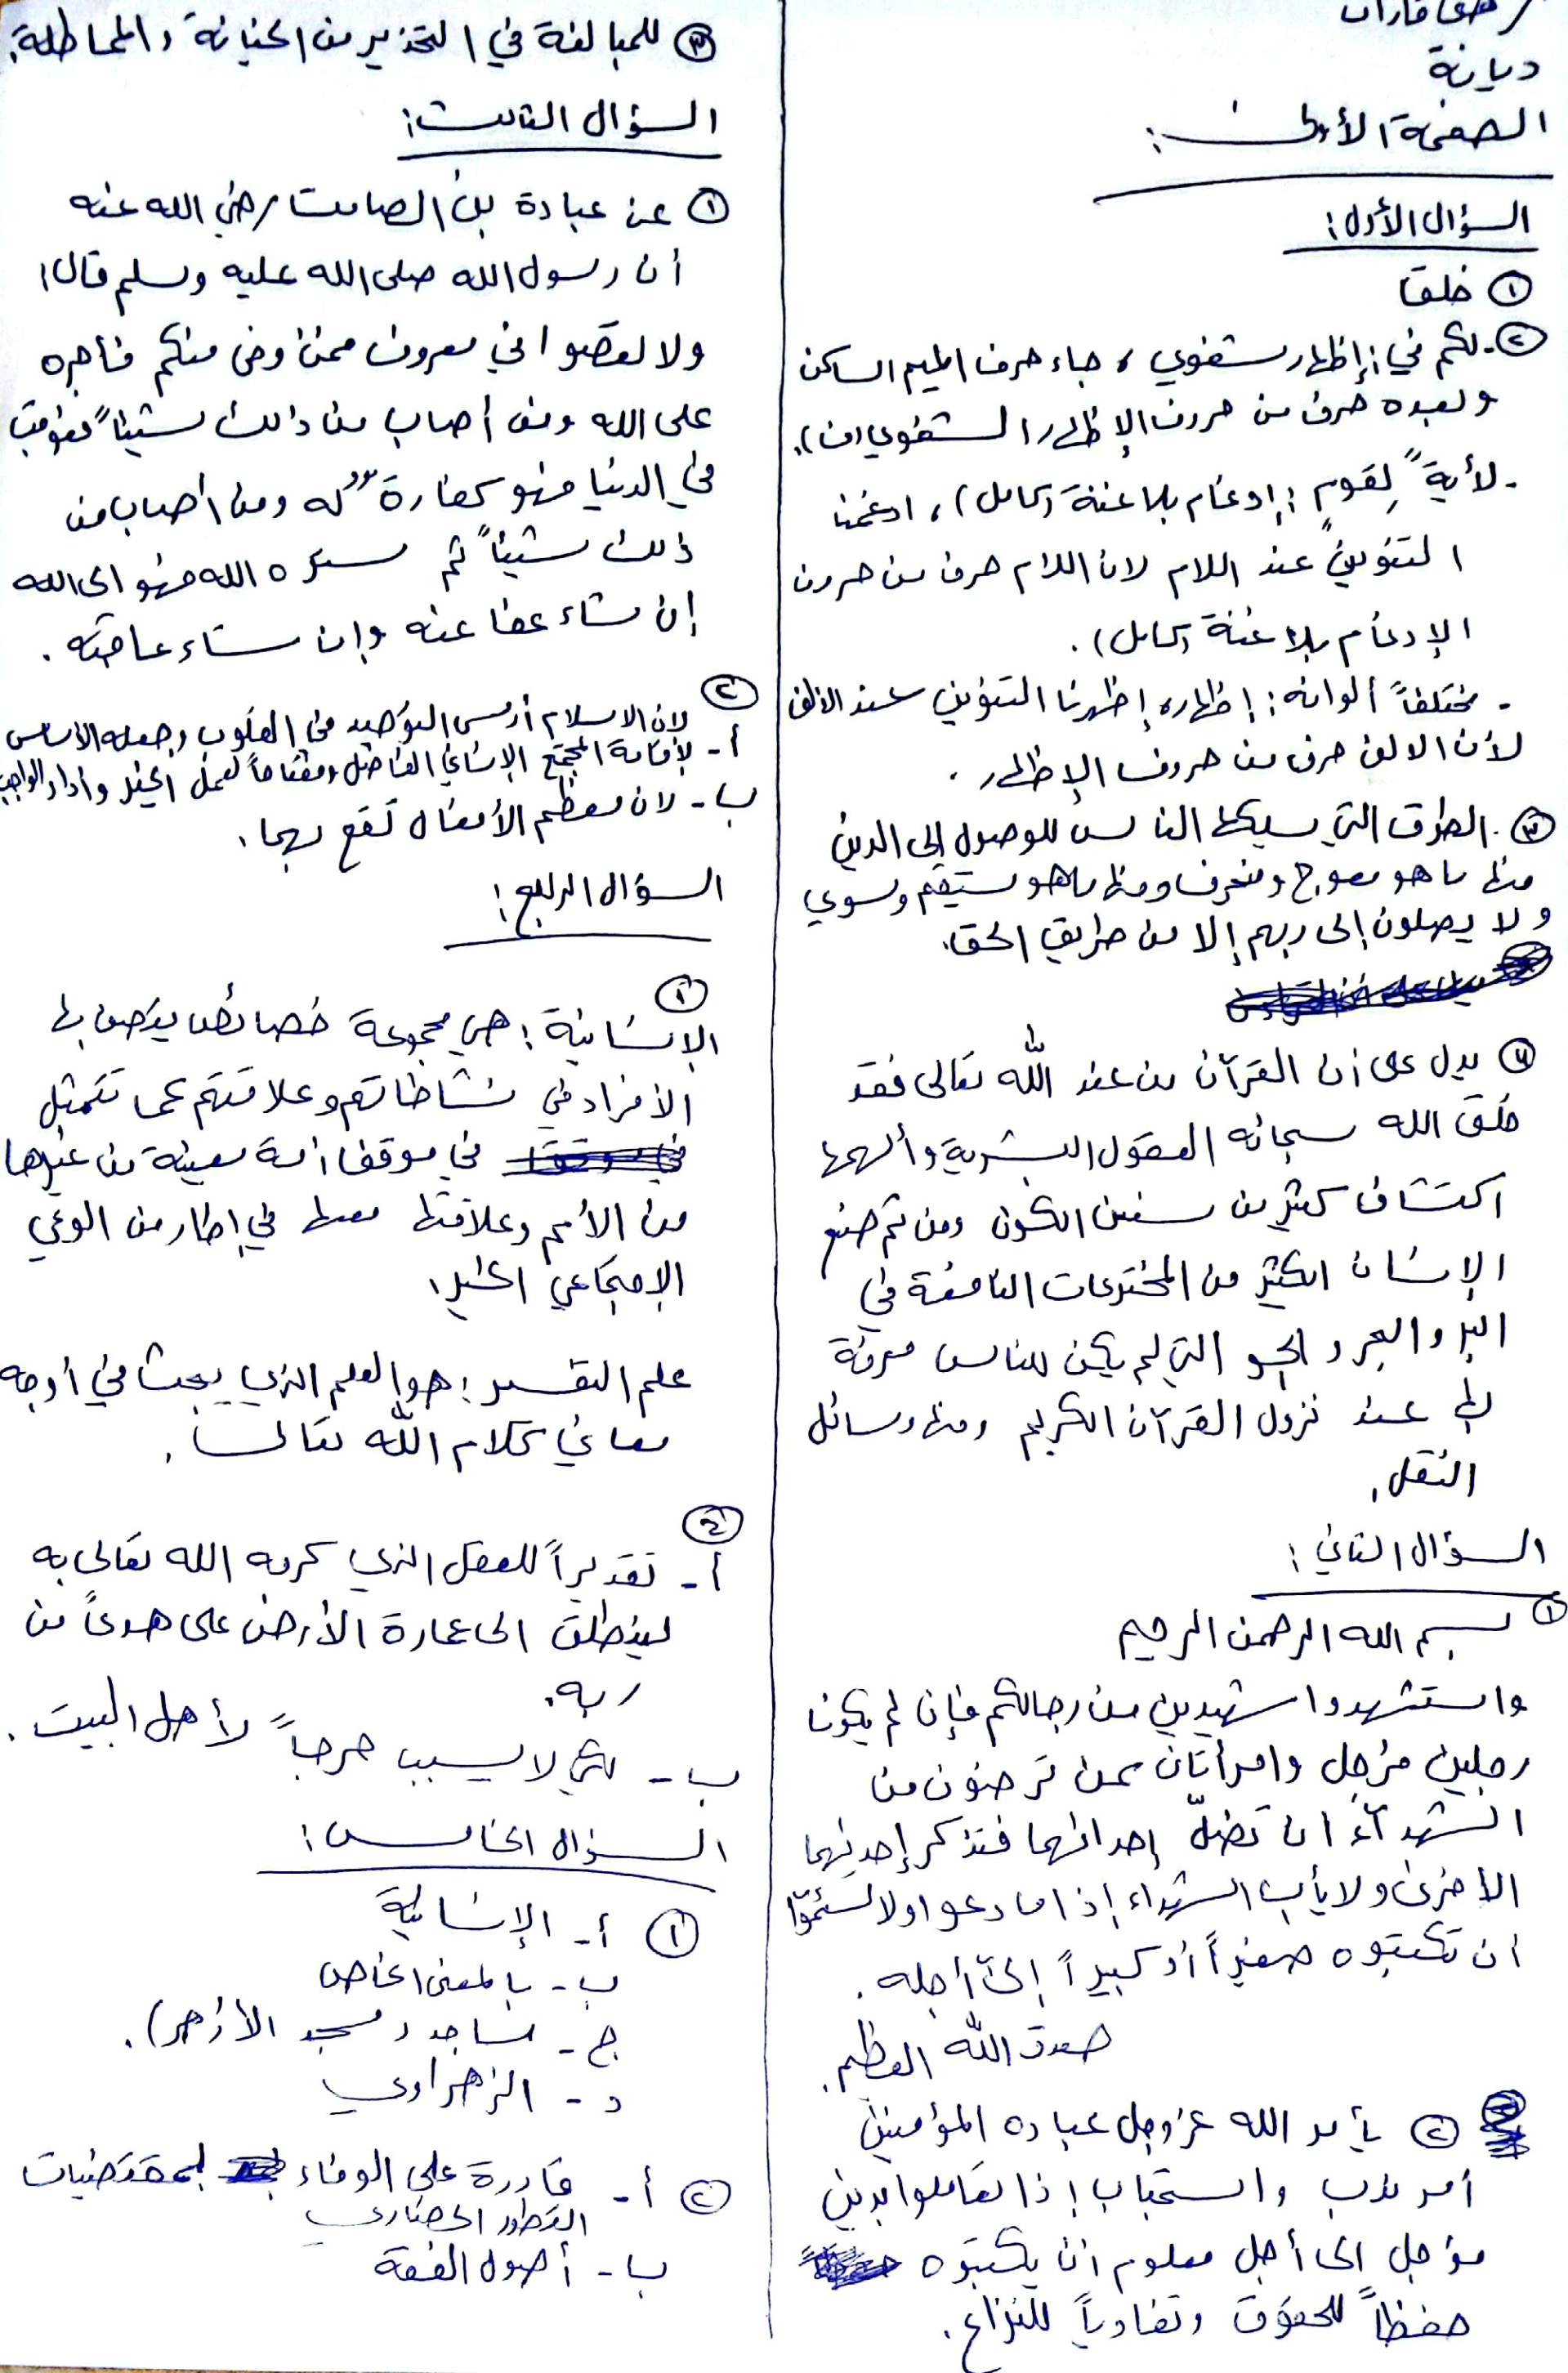 ديانة
الصفحة الأولى:
السؤال الأول:
① خلقا
② - لكم في: إظهار شفوي، جاء حرف الميم الساكن
وبعده حرف من حروف الإظهار الشفوي (ف).
- لأيةً لقوم: إدغام بلا غنة (كامل)، ادغمنا
التنوين عند اللام لان اللام حرف من حروف
الإدغام بلا غنة (كامل).
- مختلفاً ألوانه: إظهار، إظهرنا التنوين عند الالف
لأن الالف حرف من حروف الإظهار.
③ - الطرق التي يسلكها الناس للوصول إلى الدين
منها ما هو معوج ومنحرف ومنها ما هو مستقيم وسوي
ولا يصلون إلى ربهم إلا من طريق الحق.
④ يدل على أن القرآن من عند الله تعالى فقد
خلق الله سبحانه العقول البشرية وألهمها
اكتشاف كثير من سنن الكون ومن ثم صنع
الإنسان الكثير من المخترعات النافعة في
البر والبحر والجو التي لم يكن للناس معرفة
بها عند نزول القرآن الكريم ومنها وسائل
النقل.
السؤال الثاني:
① بسم الله الرحمن الرحيم
واستشهدوا شهيدين من رجالكم فإن لم يكونا
رجلين فرجل وامرأتان ممن ترضون من
الشهدآء ان تضلّ إحداهما فتذكر إحديهما
الأخرى ولا يأب الشهداء إذا ما دعوا ولا تسئموا
أن تكتبوه صغيراً أو كبيراً إلى أجله.
صدق الله العظيم.
② يأمر الله عز وجل عباده المؤمنين
أمر ندب واستحباب إذا تعاملوا بدين
مؤجل الى أجل معلوم أن يكتبوه
حفظاً للحقوق وتفادياً للنزاع.
③ للمبالغة في التحذير من الخيانة والمماطلة.
السؤال الثالث:
① عن عبادة بن الصامت رضي الله عنه
أن رسول الله صلى الله عليه وسلم قال:
ولا تعصوا في معروف فمن أوفى منكم فأجره
على الله ومن أصاب من ذالك شيئاً فعوقب
في الدنيا فهو كفارة له ومن أصاب من
ذلك شيئاً ثم ستره الله فهو الى الله
إن شاء عفا عنه وإن شاء عاقبه.
②
لان الاسلام أرسى التوحيد في القلوب وجعله الاساس
أ- لإقامة المجتمع الإنساني الفاضل ومفتاحاً لعمل الخير وأداء الواجب
ب- لان معظم الأفعال تقع بهما.
السؤال الرابع:
①
الإنسانية: هي مجموعة خصائص يتصف بها
الأفراد في نشاطاتهم وعلاقتهم كما تتمثل
في موقف أمة معينة من غيرها
من الأمم وعلاقتها معها في إطار من الوعي
الإجتماعي الخير.
علم التفسير: هو العلم الذي يبحث في أوجه
معاني كلام الله تعالى.
②
أ- تقديراً للعقل الذي كرمه الله تعالى به
لينطلق الى عمارة الأرض على هدىً من
ربه.
ب- لكي لا يسبب حرجاً لأهل البيت.
السؤال الخامس:
① أ- الإنسانية
ب- بالمعنى الخاص
ج- مساجد (مسجد الأزهر).
د- الزهراوي
② أ- قادرة على الوفاء بمقتضيات
التطور الحضاري
ب- أصول الفقة